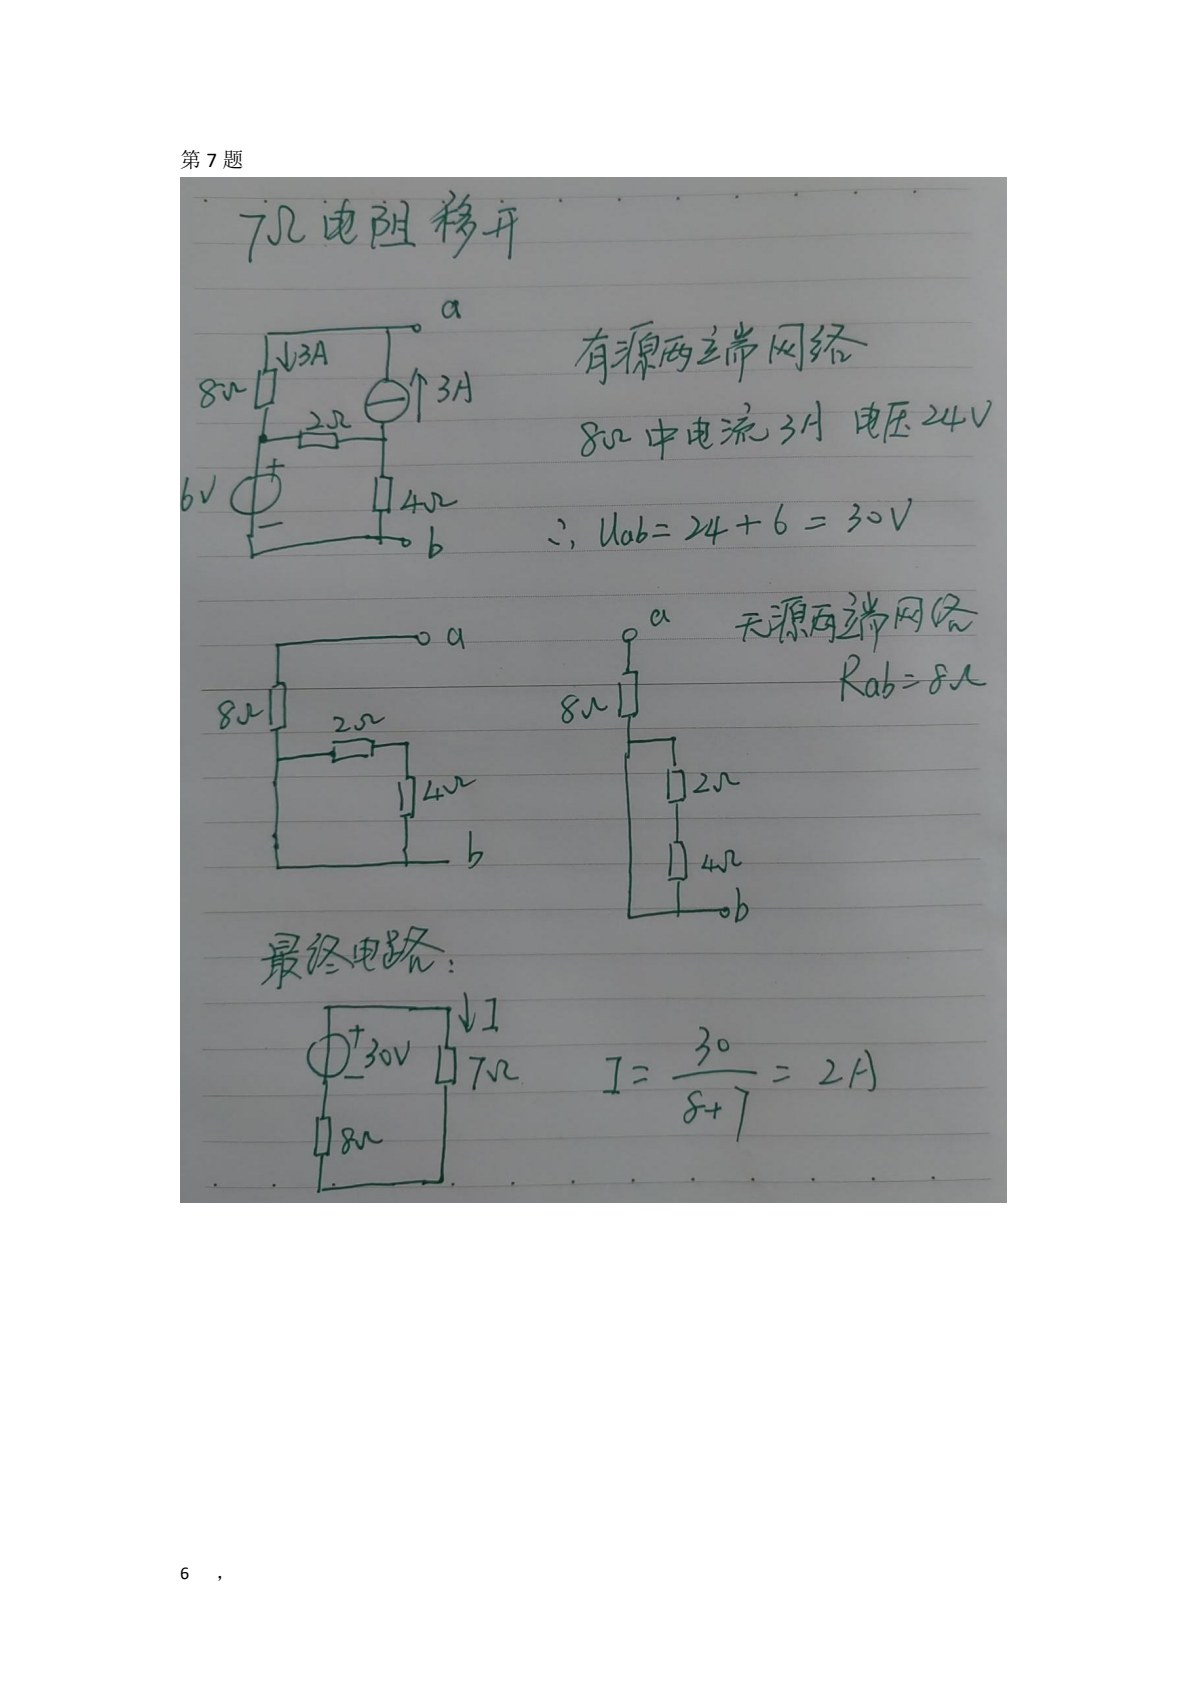 第 7 题
7Ω电阻移开
a
↓3A
8Ω
↑3A
2Ω
6V
+
−
4Ω
b
有源两端网络
8Ω中电流3A 电压24V
∴ Uab=24+6=30V
a
8Ω
2Ω
4Ω
b
a
8Ω
2Ω
4Ω
b
无源两端网络
Rab=8Ω
最终电路:
↓I
+
30V
−
7Ω
8Ω
I=30/(8+7)=2A
6 ，